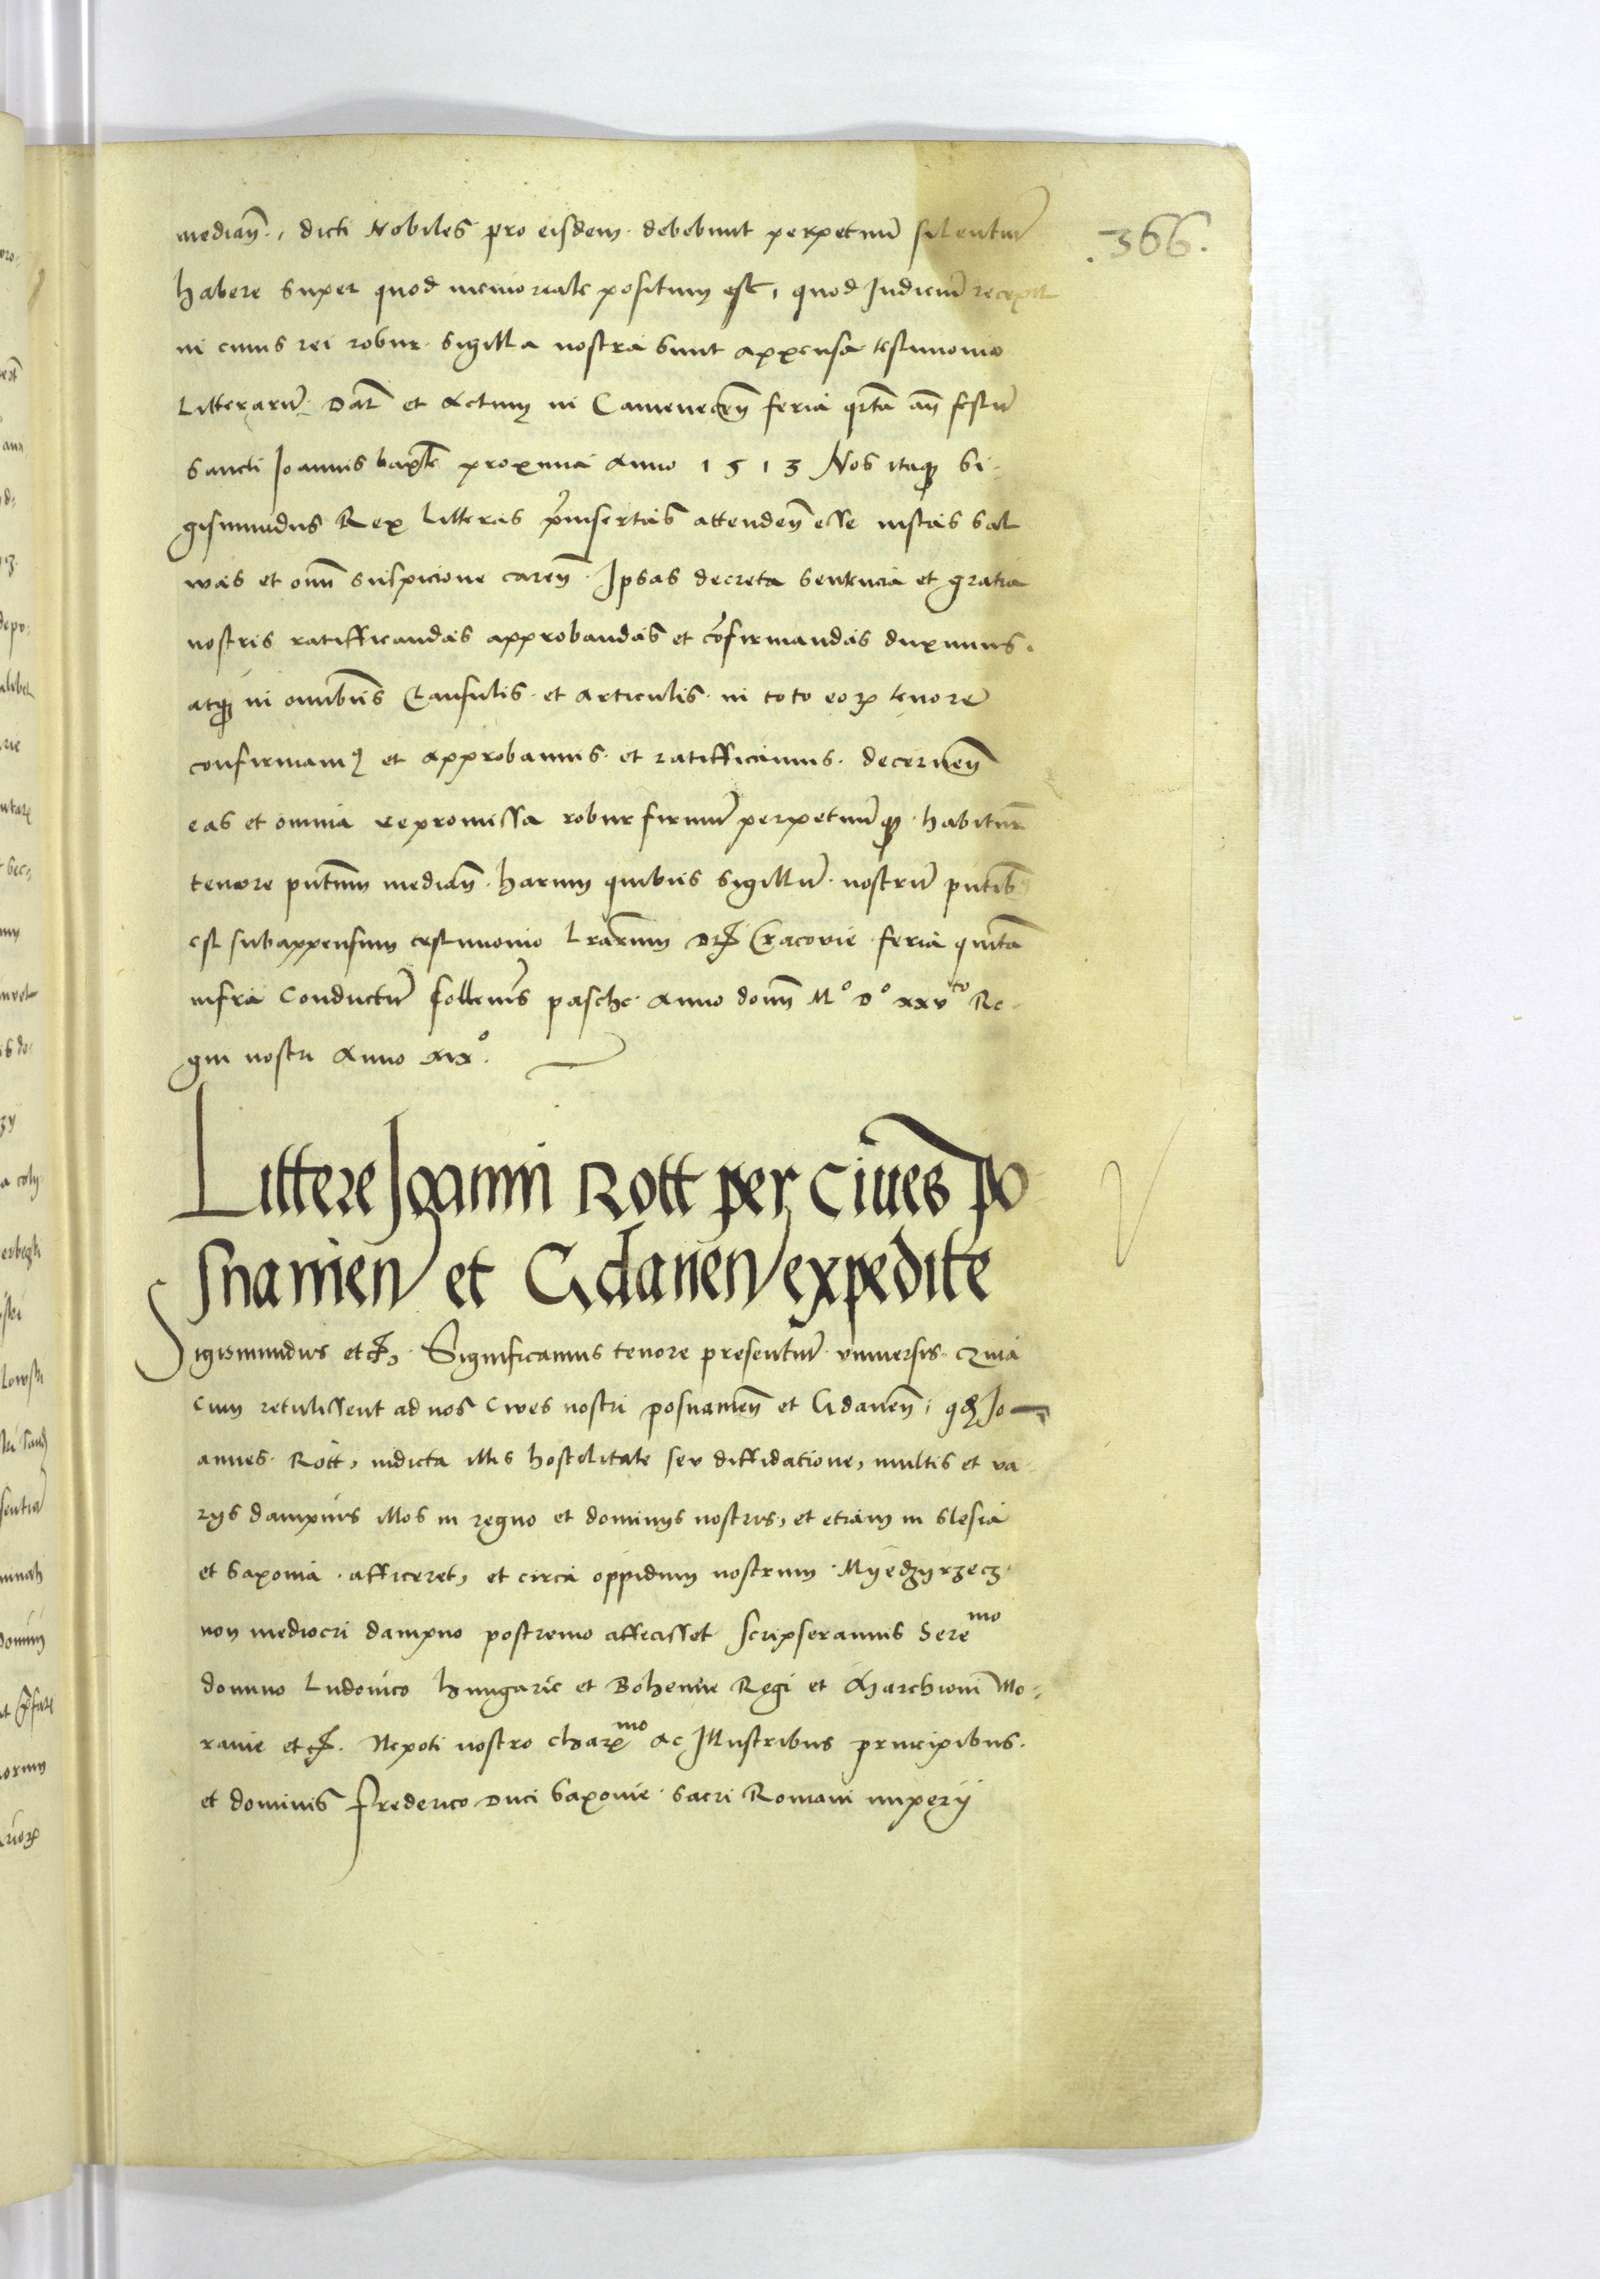 .366.
median̄., dicti Nobiles pro eisdem debebunt perpetuū silentiū
habere super quod memoreale positum est, quod Iudiciū recepit
in cuius rei robur sigilla nostra sunt appensa testimonio
Litterarū. Dat̄ et Actum in Camenecen̄ feria q̄rta an̄ festū
sancti Joannis bapt̄e proxima Anno 1513 Nos itaq₃ Si-
gismundus Rex Litteras p̄insertas attenden̄ esse iustas sal
uas et omn̄ suspicione caren̄. Ipsas decreta sentencia et gratia
nostris ratifficandas approbandas et cōfirmandas duximus.
atq₃ in omnibus Clausulis et articulis in toto eoꝝ tenore
confirmamꝰ et approbamus et ratifficamus. decernen̄
eas et omnia repromissa robur firmū perpetuūq₃ habitur̄
tenore pn̄tium median̄. harum quibus sigillū nostrū pn̄tib
est subappensum testimonio Lrārum Dat̄ Cracovie feria quīta
infra Conductū sollenis̄ pasche Anno domn̄ M° D° xxv^to Re-
gni nostri Anno xix°.
Littere Joanni Rott per Ciues Po
snanien̄ et Gdanen̄ expedite
Sigismundus etc̄. Significamus tenore presentiū vniuersis. Quia
cum retulissent ad nos Ciues nostri posnanien̄ et Gdanen̄, qđ Jo-
annes Rott, indicta illis hostilitate seu diffidatione, multis et va-
rijs dampnis illos in regno et dominijs nostris, et etiam in Slesia
et Saxonia afficeret, et circa oppidum nostrum Myedzyrzecz
non mediocri dampno postremo affecisset Scripseramus Sere^mo
domino Ludouico hungarie et Bohemie Regi et Marchioni Mo-
rauie etc̄. Nepoti nostro Char^mo Ac Illustribus principibus.
et dominis Frederico Duci Saxonie Sacri Romani imperij